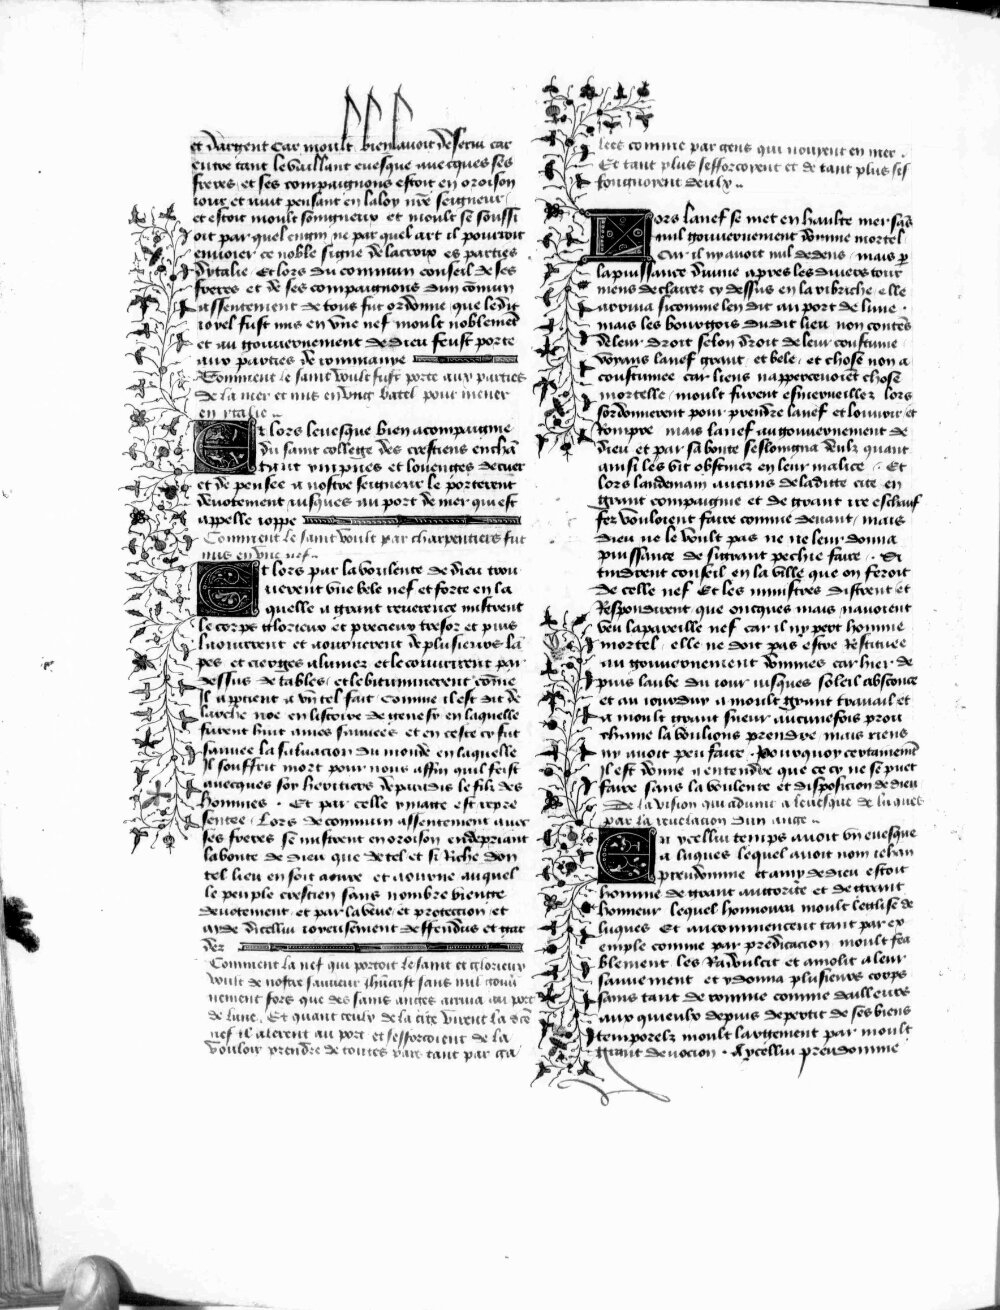 et dargent Car moult bien avoit deservi car
entre tant le vaillant evesque avecques ses
freres et ses compaignons estoit en oroison
jour et nuit pensant en la loy nre seigneur
et estoit moult songneux et moult se soussi
oit par quel engin ne par quel art il pourroit
envoier ce noble signe de la croix es parties
dytalie Et lors du commun conseil de ses
freres et de ses compaignons dun comun
assentement de tous fut ordonne que le dit
joyel fust mis en une nef moult noblement
et au gouvernement de Dieu feust porte
aux parties de rommanie
Comment le saint voult fust porte aux parties
de la mer et mis en ung batel pour mener
en ytalie
Et lors levesque bien acompaignie
du saint college des crestiens enchā
tant ympnes et louenges de cuer
et de pensee a nostre seigneur le porterent
devotement jusques au port de mer qui est
appelle joppe
Comment le saint voult par charpentiers fut
mis en une nef
Et lors par la voulente de dieu trou
verent une bele nef et forte en la
quelle a grant reverence mistrent
le corps glorieux et precieux tresor et puis
laournerent et aournerent de plusieurs lā
pes et cierges alumez et le couvrirent par
dessus de tables et le bitumerent cōme
Il apptient a un tel fait comme il est dit de
larche noe en listoire de genesy en laquelle
furent huit ames sauvees et en ceste cy fut
sauvee la salvacion du monde en laquelle
Il souffrit mort pour nous affin quil feist
avecques soy heritiers de paradis le filz des
hommes Et par celle ymage est repre
sentee Lors de commun assentement avec
ses freres se mistrent en oroison en depriant
la bonte de dieu que de tel et si riche don
tel lieu en soit aourne et aourne auquel
le peuple crestien sans nombre viengne
devotement et par la veue et protection et
ayde dicellui joyeusement deffendus et gar
dez
Comment la nef qui portoit le saint et glorieux
voult de nostre sauveur Jhucrist sans nul gouv
nement fors que des sains anges arriva au port
de lune Et quant ceulx de la cite virent la dce
nef il alerent au port et sefforcoient de la
vouloir prendre de toutes pars tant par ga
lees comme par gens qui nouent en mer
Et tant plus sefforcoyent et de tant plus ses
loingnoyent deulx
Lors la nef se met en haulte mer sās
nul gouvernement domme mortel
Car il ny avoit nul dedens mais p
la puissance divine apres les divers tour
mens declairez cy dessus en la rubriche elle
arriva si comme len dit au port de lune
mais les bourgois dudit lieu non contēs
de leur droit selon droit de leur coustume
voyans la nef grant et bele et chose non a
coustumee car liens nappercevoiēt chose
mortelle moult furent esmerveillez lors
sordonnerent pour prendre la nef et louvrir et
rompre mais la nef au gouvernement de
dieu et par sa bonte sesloingna deulz quant
ainsi les vit obstinez en leur malice Et
lors landemain aucuns de ladicte cite en
grant compaignie et de grant ire eschauf
fez vouloient faire comme devant mais
dieu ne le voult pas ne ne leur donna
puissance de si grant pechie faire Si
tindrent conseil en la ville que on feroit
de celle nef Et les ministres distrent et
Respondirent que oncques mais navoient
veu la pareille nef car il ny pert homme
mortel elle ne doit pas estre Restituee
au gouvernement dommes car hier de
puis laube du jour jusques soleil absconce
et au jourduy a moult grant travail et
a moult grant sueur aucunesfois prou
chaine la voulions prendre mais riens
ny avoit peu faire Pourquoy certainement
Il est donne a entendre que ce cy ne se puet
faire sans la voulente et disposicion de dieu
De la vision qui advint a levesque de luques
par la revelacion dun ange
En ycellui temps avoit un evesque
a luques lequel avoit nom jehan
preudomme et amy de dieu estoit
homme de grant auctorite et de grant
honneur lequel honnoura moult leglise de
luques Et au commencent tant par ex
emple comme par predicacion moult fea
blement les Raduleit et amolit a leur
sauvement et y donna plusieurs corps
sains tant de romme comme dailleurs
aux quieulx depuis departit de ses biens
temporelz moult largement par moult
grant devocion A ycellui preudomme